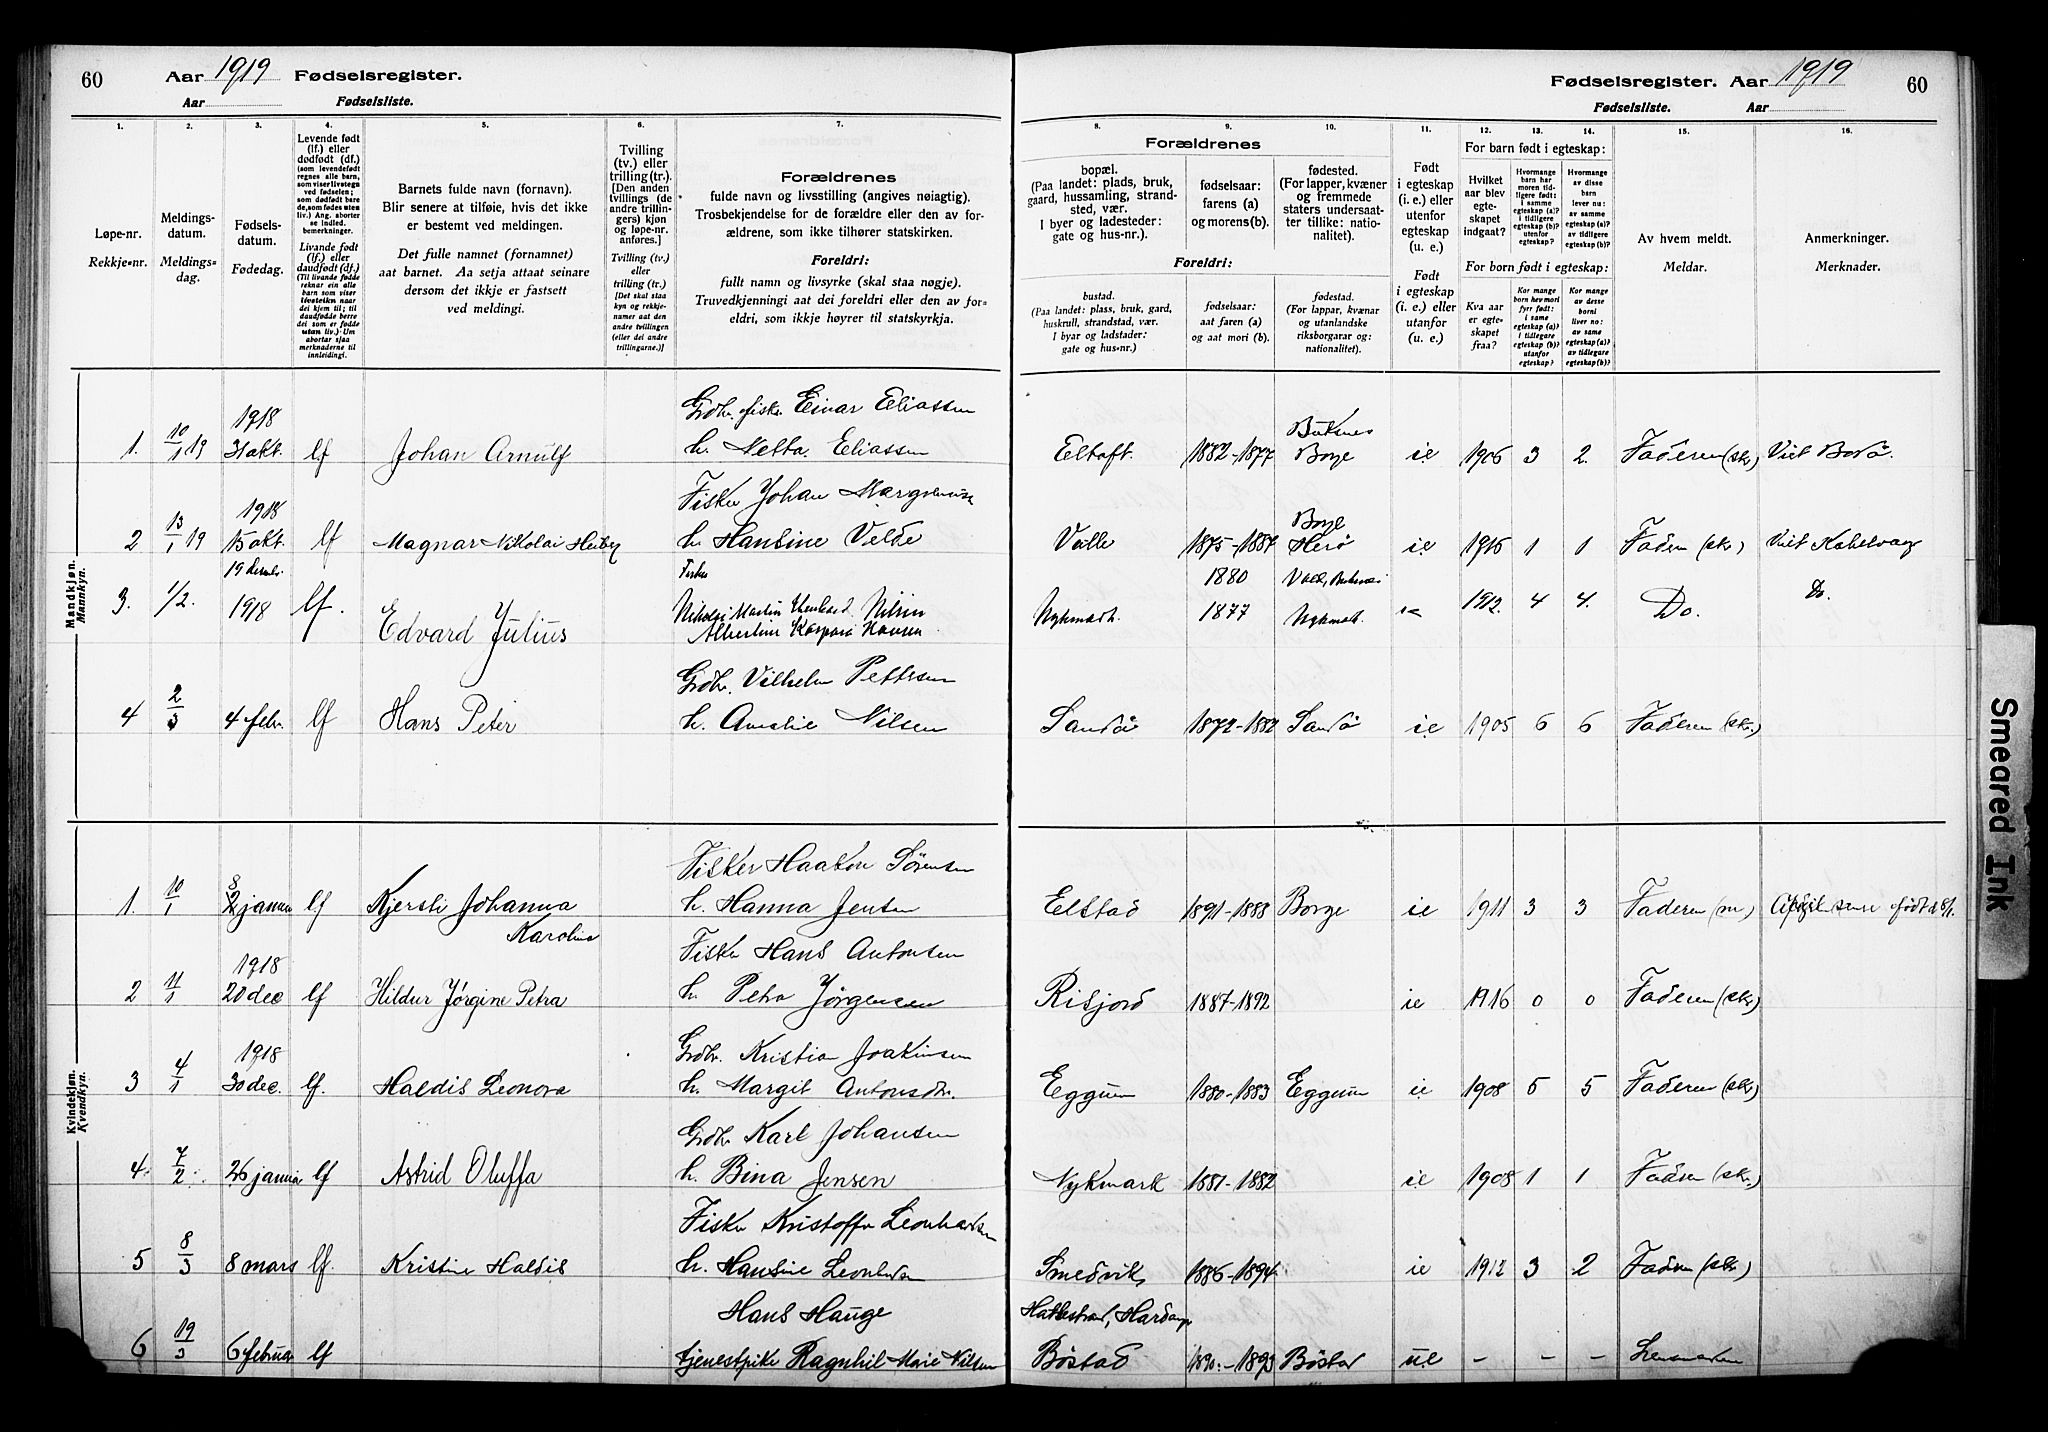 60 Aar 1919 Fødselsregister.
Aar Fødselsliste.
Fødselsregister. Aar 1919 60
Fødselsliste. Aar
1. 2. 3. 4. 5. 6. 7.
Løpe-nr.
Rekkje-nr.
Meldings-
datum.
Meldings-
dag.
Fødsels-
datum.
Fødedag.
Levende født
(lf.) eller
dødfødt (df.)
(som levendefødt
regnes alle barn,
som viser livstegn
ved fødselen;
som dødfødt bare
de, som fødes uten
liv.) Ang. aborter
se indled.
bemerkninger.
Livande født
(lf.) eller
daudfødt (df.)
(Til livande fødde
reknar ein alle
born som viser
livsteikn naar
dei kjem til; til
daudfødde berre
dei som er fødde
utan liv.) Um
abortar sjaa
merknaderne til
innleidingi.
Barnets fulde navn (fornavn).
Blir senere at tilføie, hvis det ikke
er bestemt ved meldingen.
Det fulle namnet (fornamnet)
aat barnet. Aa setja attaat seinare
dersom det ikkje er fastsett
ved meldingi.
Tvilling
(tv.) eller
trilling (tr.).
[Den anden
tvillings (de
andre trillin-
gers) kjøn
og løpe-nr.
anføres.]
Tvilling (tv.)
eller
trilling (tr.)
[Det skal staa
kyn og rekkje-
numer aat den
andre tvillingen
(eller dei andre
trillingarne.)]
Forældrenes
fulde navn og livsstilling (angives nøiagtig).
Trosbekjendelse for de forældre eller den av for-
ældrene, som ikke tilhører statskirken.
Foreldri:
fullt namn og livsyrke (skal staa nøgje).
Truvedkjenningi aat dei foreldri eller den av for-
eldri, som ikkje høyrer til statskyrkja.
8. 9. 10. 11. 12. 13. 14. 15. 16.
Forældrenes
bopæl.
(Paa landet: plads, bruk,
gaard, hussamling, strand-
sted, vær.
I byer og ladesteder:
gate og hus-nr.).
fødselsaar:
farens (a)
og morens(b).
fødested.
(For lapper, kvæner
og fremmede
staters undersaat-
ter tillike: natio-
nalitet).
Foreldri:
bustad.
(Paa landet: plass, bruk, gard,
huskrull, strandstad, vær.
I byar og ladstader:
gate og hus-nr.)
fødselsaar:
aat faren (a)
og aat mori (b).
fødestad.
(For lappar, kvænar
og utanlandske
riksborgarar og:
nationalitet).
Født
i egteskap
(i. e.) eller
utenfor
egteskap
(u. e.)
Født
i egteskap
(i. e.) eller
utanfor
(u. e.)
For barn født i egteskap:
Hvilket
aar blev
egte-
skapet
indgaat?
Hvormange
barn har
moren tid-
ligere født:
i samme
egteskap (a)?
i tidligere
egteskap (b)?
utenfor
egteskap?
Hvormange
av disse
barn
lever nu:
av samme
egteskap (a)?
av tidligere
egteskap (b)?
For born født i egteskap:
Kva aar
er egte-
skapet
fraa?
Kor mange
born hev mori
fyrr født:
i same
egteskap (a)?
i tidlegare
egteskap (b)?
utanfor
egteskap?
Kor mange
av desse
borni
liver no:
av same
egteskap (a)?
av tidlegare
egteskap (b)?
Av hvem meldt.
Meldar.
Anmerkninger.
Merknader.
Mandkjøn.
Mannkyn.
Gdbr. fisker Einar Eliassen
1. 10/1 19 1918 31 okt. lf Johan Arnulf h. Netta Eliassen Eltoft. 1882-1877 Buksnes Borge ie 1906 3 2. Faderen (skr)
Fisker Johan
2 13/1 19 1918 15 okt. lf Magnar Nikolai h. Hansine Velde Valle 1875-1887 Borge Herø ie 1916 1 1 Faderen (skr)
3. 1/2. 19 1918 lf. Edvard Julius Fisker Nikolai Martin Nilsen
Albertine Kaspara Hansen 1880 1877 1912. 4 4. Do. Do.
Gdbr. Vilhelm Pettersen
4 2/3 4 febr. lf Hans Peter h. Amalie Nilsen Sandø 1872-1882 Sandø ie 1905 6 6 Faderen (skr.)
Kvindekjøn.
Kvendkyn.
Fisker Haakon Sørensen
1. 10/1 8 2 januar lf Kjersti Johanna Karoline h. Hanna Jensen Elstad 1891-1888 Borge ie 1911 3 3 Faderen (m) født d 8/1.
Fisker Hans Antonsen
2 11/1 1918 20 dec lf Hildur Jørgine Petra h. Petra Jørgensen Risjord 1887-1892 ie 1916 0 0 Faderen (skr)
Gdbr. Kristian Joakimsen
3 4/1 1918 30 dec. lf. Haldis Leonora h. Margit Antonsdtr. Eggum 1880-1883 Eggum ie 1908 5 5 Faderen (skr)
Gdbr Karl Johansen
4. 7/2 26 januar lf Astrid Oluffa h. Bina Jensen Nykmark 1881-1882 ie 1908 1 1 Faderen (skr.)
Fisker Kristoffer Leonhardsen
5 8/3 8 mars lf. Kristine Haldis h. Hansine Leonhardsen Smedvik 1886-1894 ie 1912 3 2 Faderen (skr)
Hans Hauge
6 19/3 6 februar lf tjenestpike Ragnhil Marie Nilsen Bøstad 1890-1893 Bøstad ue - - - Lensmanden
Smeared Ink